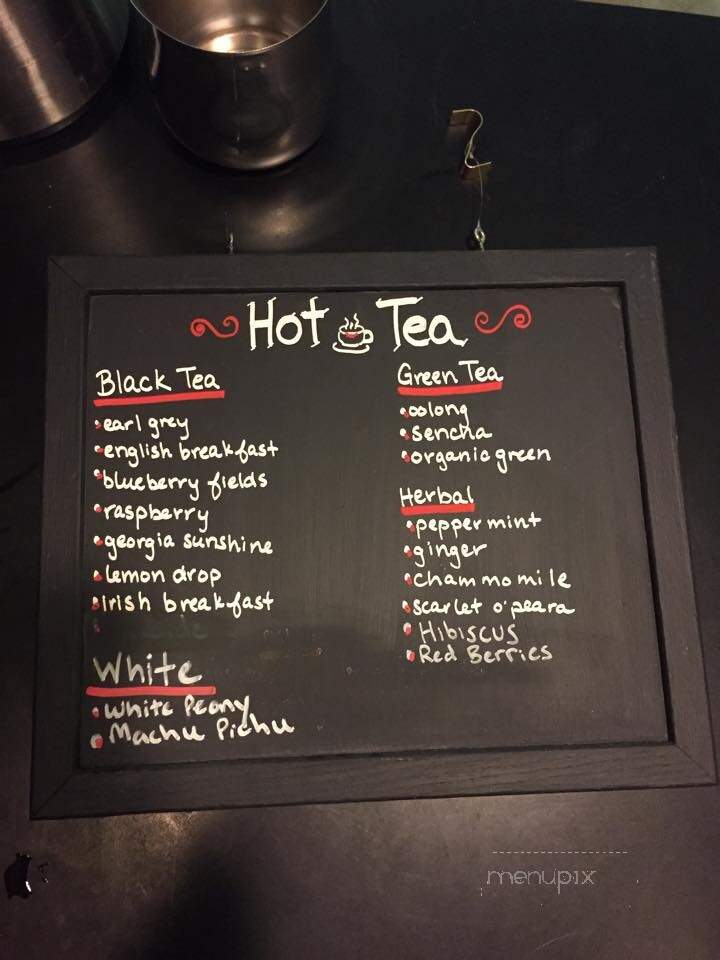 Hot Tea
Black Tea
earl grey
english breakfast
blueberry fields
raspberry
georgia sunshine
lemon drop
irish breakfast
White
White Peony
Machu Pichu
Green Tea
oolong
sencha
organic green
Herbal
peppermint
ginger
chammomile
scarlet o'peara
Hibiscus
Red Berries
menupix